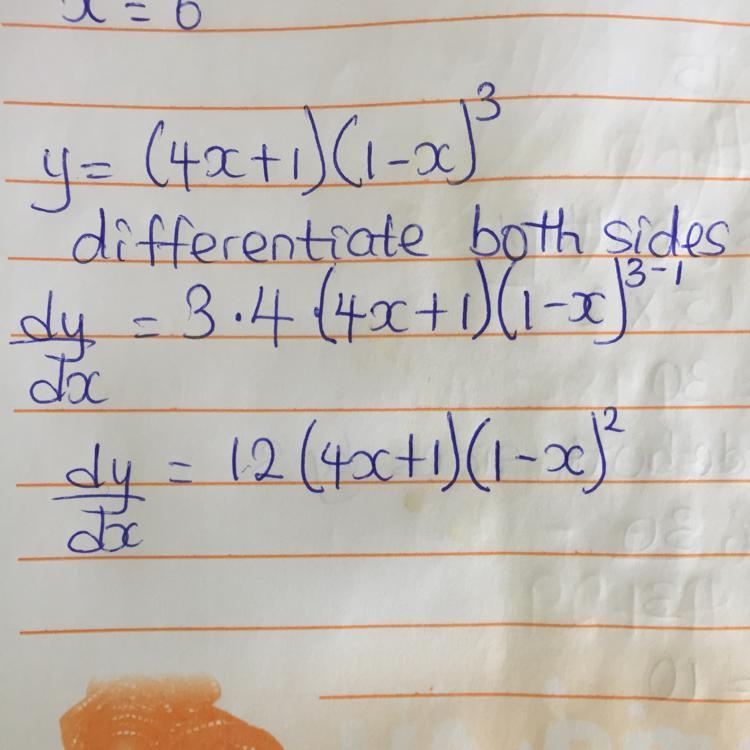 x = 6
y = (4x+1)(1-x)^3
differentiate both sides
dy/dx = 3·4(4x+1)(1-x)^{3-1}
dy/dx = 12(4x+1)(1-x)^2